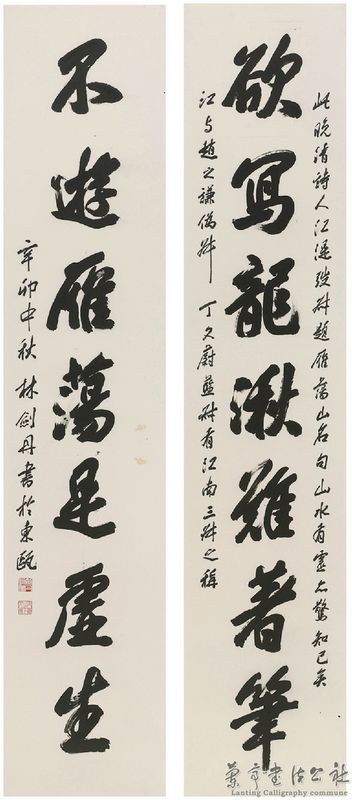 此晚清詩人江湜弢叔題雁蕩山名句山水有靈亦驚知己矣
欲寫龍湫難著筆
江與趙之謙撝叔
丁文蔚藍叔有江南三叔之稱
不遊雁蕩是虛生
辛卯中秋林劍丹書於東甌
蘭亭書法公社
Lanting Calligraphy commune